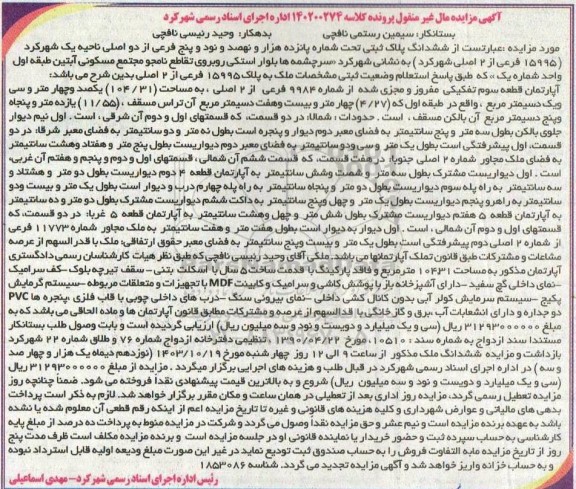 آگهی مزایده مال غیر منقول پرونده کلاسه ۱۴۰۲۰۰۲۷۴ اداره اجرای اسناد رسمی شهرکرد
بستانکار: سیمین رستمی نافچی بدهکار: وحید رئیسی نافچی
مورد مزایده :عبارتست از ششدانگ پلاک ثبتی تحت شماره پانزده هزار و نهصد و نود و پنج فرعی از دو اصلی ناحیه یک شهرکرد
(۱۵۹۹۵ فرعی از ۲ اصلی شهرکرد ) به نشانی شهرکرد -سرچشمه ها بلوار استکی روبروی تقاطع نامجو مجتمع مسکونی آبتین طبقه اول
واحد شماره یک» که طبق پاسخ استعلام وضعیت ثبتی مشخصات ملک به پلاک ۱۵۹۹۵ فرعی از ۲ اصلی بدین شرح می باشد:
آپارتمان قطعه سوم تفکیکی مفروز و مجزی شده از شماره ۹۹۸۴ فرعی از ۲ اصلی ، به مساحت (۱۰۴/۳۱) یکصد وچهار متر و سی
ویک دسیمتر مربع ،واقع در طبقه اول که (۴/۲۷) چهار متر و بیست وهفت دسیمتر مربع آن تراس مسقف ،(۱۱/۵۵) یازده متر و پنجاه
وپنج دسیمتر مربع آن بالکن مسقف ، است . حدودات : شمالا: در دو قسمت، که قسمتهای اول و دوم آن شرقی ، است . اول نیم دیوار
جلوی بالکن بطول سه متر و پنج سانتیمتر به فضای معبر دوم دیوار و پنجره است بطول نه متر و دو سانتیمتر به فضای معبر شرقا: در دو
قسمت، اول پیشرفتگی است بطول یک متر و سی و دو سانتیمتر به فضای معبر دوم دیواریست بطول پنج متر و هفتاد وهشت سانتیمتر
به فضای ملک مجاور شماره ۲ اصلی جنوبا: در هفت قسمت، که قسمت ششم آن شمالی ، قسمتهای اول و دوم و پنجم و هفتم آن غربی،
است . اول دیواریست مشترک بطول سه متر و شصت وشش سانتیمتر به آپارتمان قطعه ۴ دوم دیواریست بطول دو متر و هشتاد و
سه سانتیمتر به راه پله سوم دیواریست بطول دو متر و پنجاه سانتیمتر به راه پله چهارم درب و دیوار است بطول یک متر و بیست ودو
سانتیمتر به راهرو پنجم دیواریست بطول یک متر و چهل وپنج سانتیمتر به داکت ششم دیواریست مشترک بطول دو متر و ده سانتیمتر
به آپارتمان قطعه ۵ هفتم دیواریست مشترک بطول شش متر و چهل وهشت سانتیمتر به آپارتمان قطعه ۵ غربا: در دو قسمت، که
قسمتهای اول و دوم آن شمالی ، است . اول دیوار به دیوار است بطول هفت متر و هفت سانتیمتر به ملک مجاور شماره ۱۱۷۷۳ فرعی
از شماره ۲ اصلی دوم پیشرفتگی است بطول یک متر و بیست وپنج سانتیمتر به فضای معبر حقوق ارتفاقی: ملک با قدرالسهم از عرصه
مشاعات و مشترکات طبق قانون تملک آپارتمانها می باشد. ملکی آقای وحید رئیسی نافچی که طبق نظر هیات کارشناسان رسمی دادگستری
آپارتمان مذکور به مساحت ۱۰۴۳۱ مترمربع و فاقد پارکینگ با قدمت ساخت ۵ سال با اسکلت بتنی – سقف تیرچه بلوک –کف سرامیک
–نمای داخلی گچ سفید –دارای آشپزخانه باز با پوشش کاشی و سرامیک و کابینت MDF با تجهیزات و متعلقات مربوطه –سیستم گرمایش
پکیج –سیستم سرمایش کولر آبی بدون کانال کشی داخلی –نمای بیرونی سنگ –درب های داخلی چوبی با قاب فلزی ،پنجره ها PVC
دو جداره و دارای انشعابات آب ،برق و گاز خانگی با قدالسهم از عرصه و مشترکات مطابق قانون آپارتمان ها و ماده الحاقی می باشد که به
مبلغ ۳۱۲۹۳۰۰۰۰۰۰ ریال (سی و یک میلیارد و دویست و نود و سه میلیون ریال) ارزیابی گردیده است و بابت وصول طلب بستانکار
مستندا سند ازدواج به شماره سند: ۱۰۵۱۰،مورخ ۱۳۹۰/۰۴/۲۲ تنظیمی دفترخانه ازدواج شماره ۷۶ و طلاق شماره ۲۲ شهرکرد
بازداشت و مزایده ششدانگ ملک مذکور از ساعت ۹ الی ۱۲ روز چهارشنبه مورخ ۱۴۰۳/۱۰/۱۹ (نوزدهم دیماه یک هزار و چهار صد
و سه) در اداره اجرای اسناد رسمی شهرکرد در قبال طلب و هزینه های اجرایی برگزار میگردد . مزایده از مبلغ ۳۱۲۹۳۰۰۰۰۰۰ ریال
(سی و یک میلیارد و دویست و نود و سه میلیون ریال) شروع و به بالاترین قیمت پیشنهادی نقدا فروخته می شود. ضمناً چنانچه روز
مزایده تعطیل رسمی گردد، مزایده روز اداری بعد از تعطیلی در همان ساعت و مکان مقرر برگزار خواهد شد. لازم به ذکر است پرداخت
بدهی های مالیاتی و عوارض شهرداری و کلیه هزینه های قانونی و غیره تا تاریخ مزایده اعم از اینکه رقم قطعی آن معلوم شده یا نشده
باشد به عهده برنده مزایده است و نیم عشر و حق مزایده نقداً وصول می گردد و شرکت در مزایده منوط به پرداخت ده درصد از مبلغ پایه
کارشناسی به حساب سپرده ثبت و حضور خریدار یا نماینده قانونی او در جلسه مزایده است و برنده مزایده مکلف است ظرف مدت پنج
روز از تاریخ مزایده مابه التفاوت فروش را به حساب صندوق ثبت تودیع نماید در غیر این صورت مبلغ ودیعه اولیه قابل استرداد نبوده
و به حساب خزانه واریز خواهد شد و آگهی مزایده تجدید می گردد. شناسه ۱۸۵۳۰۸۶
رئیس اداره اجرای اسناد رسمی شهرکرد– مهدی اسماعیلی